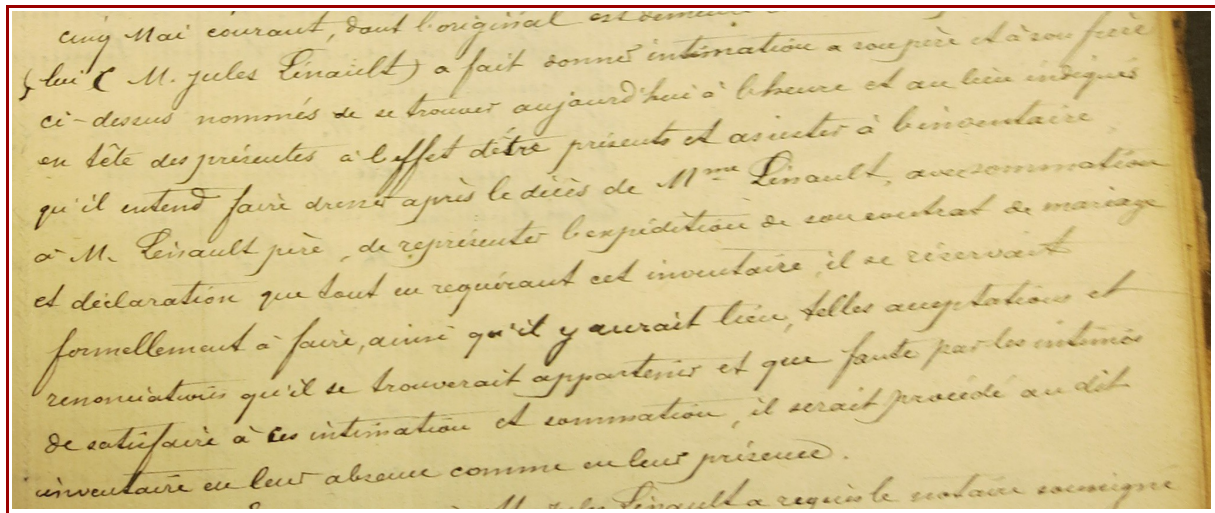 cinq Mai courant, dont l'original est demeuré
lui ( M. Jules Linault ) a fait donner intimation a son père et à son frère
ci-dessus nommés de se trouver aujourd'hui à l'heure et au lieu indiqués
en tête des présentes à l'effet d'être présents et assister à l'inventaire
qu'il entend faire dresser après le décès de Mme Linault, avec sommation
à M. Linault père, de représenter l'expédition de son contrat de mariage
et déclaration que tout en requérant cet inventaire, il se réservait
formellement à faire, ainsi qu'il y aurait lieu, telles acceptations et
renonciations qu'il se trouverait appartenir et que faute par les intimés
de satisfaire à ces intimation et sommation, il serait procédé au dit
inventaire en leur absence comme en leur présence.
M. Jules Linault a requis le notaire soussigné